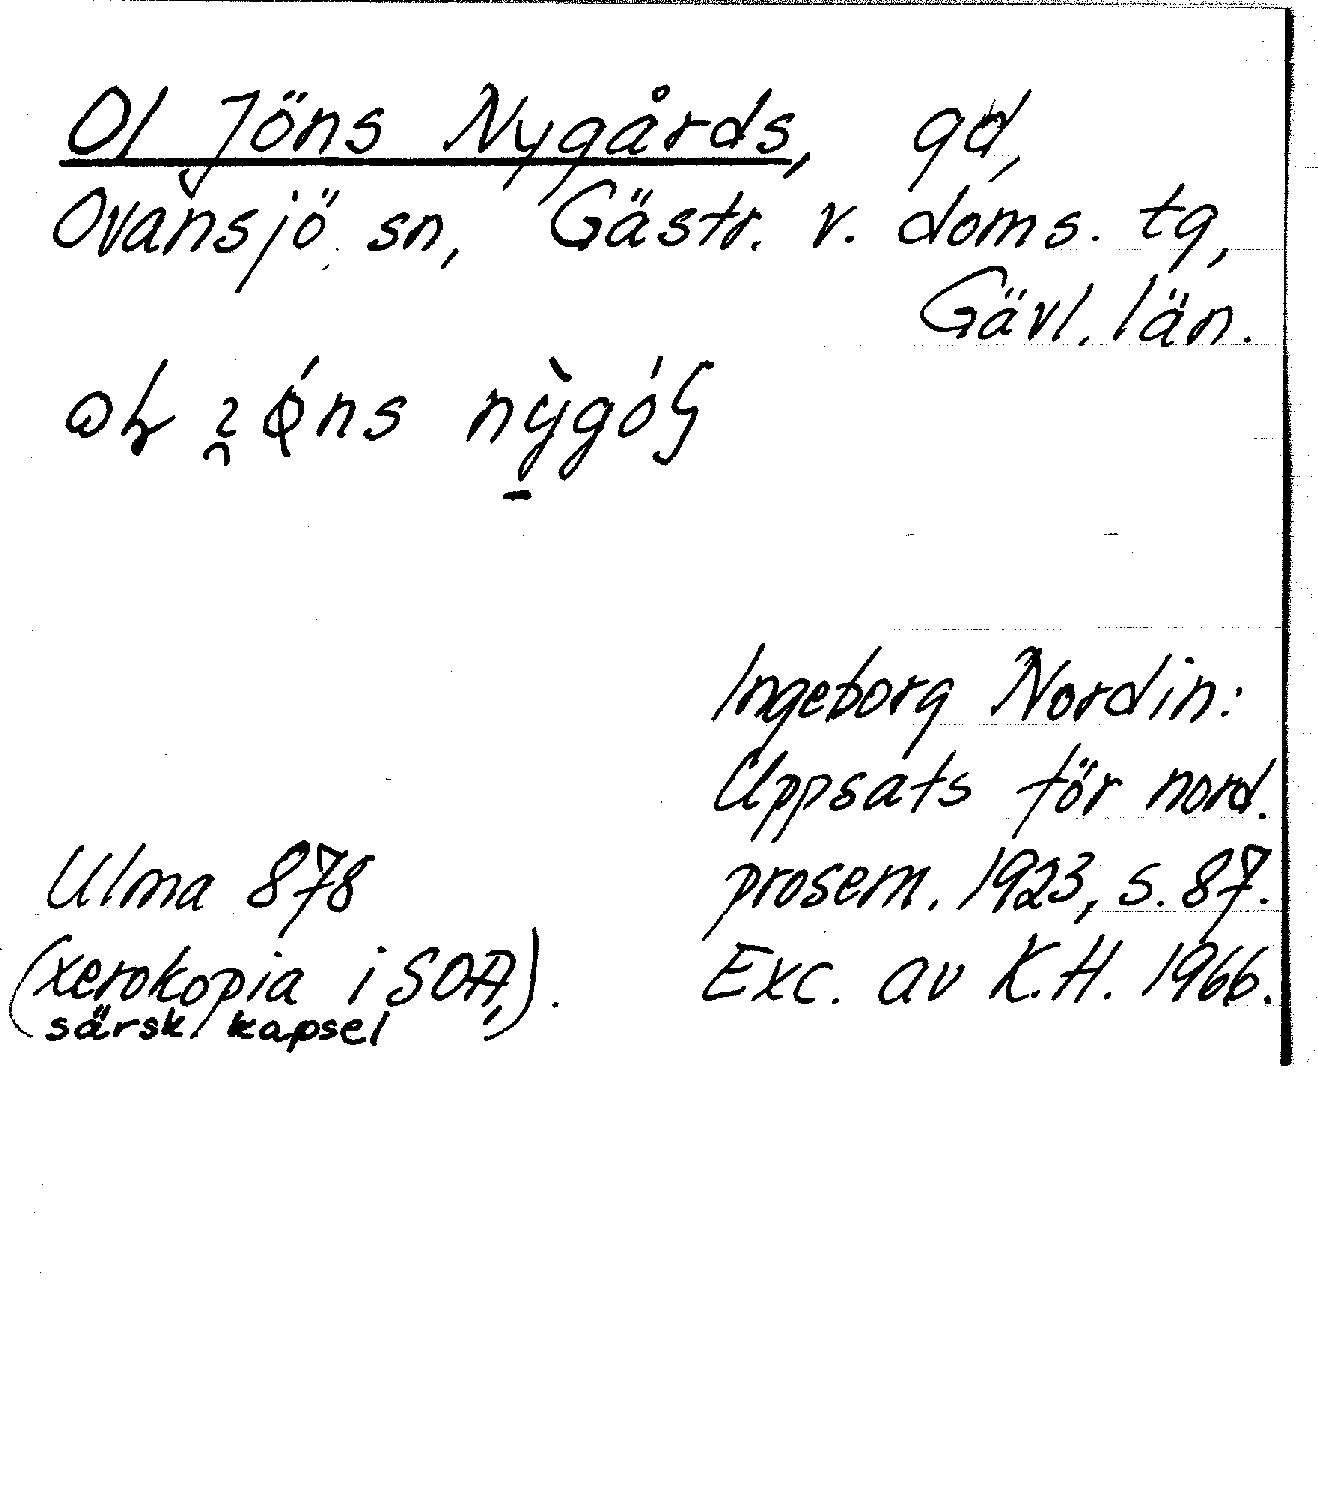 Ol Jöns Nygårds, gd,
Ovansjö sn, Gästr. v. doms. tg,
Gävl. län.
Ingeborg Nordin:
Uppsats för nord.
prosem. 1923, s. 87.
Exc. av K.H. 1966.
Ulma 878
(xerokopia i SOA,).
särsk. kapsel